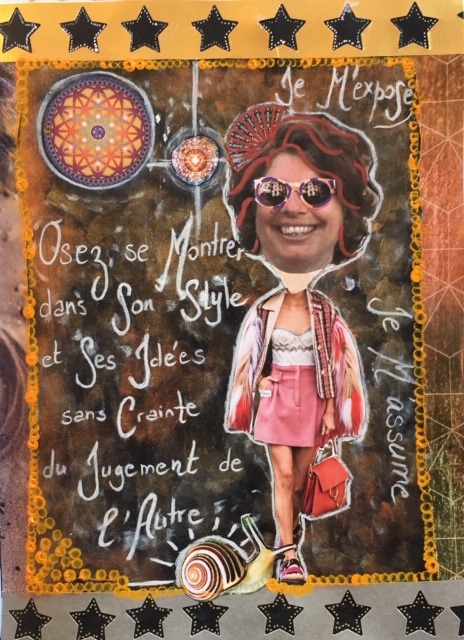 Je M'expose
Osez se Montrer
dans Son Style
et Ses Idées
sans Crainte
du Jugement de
l'Autre
Je M'assume